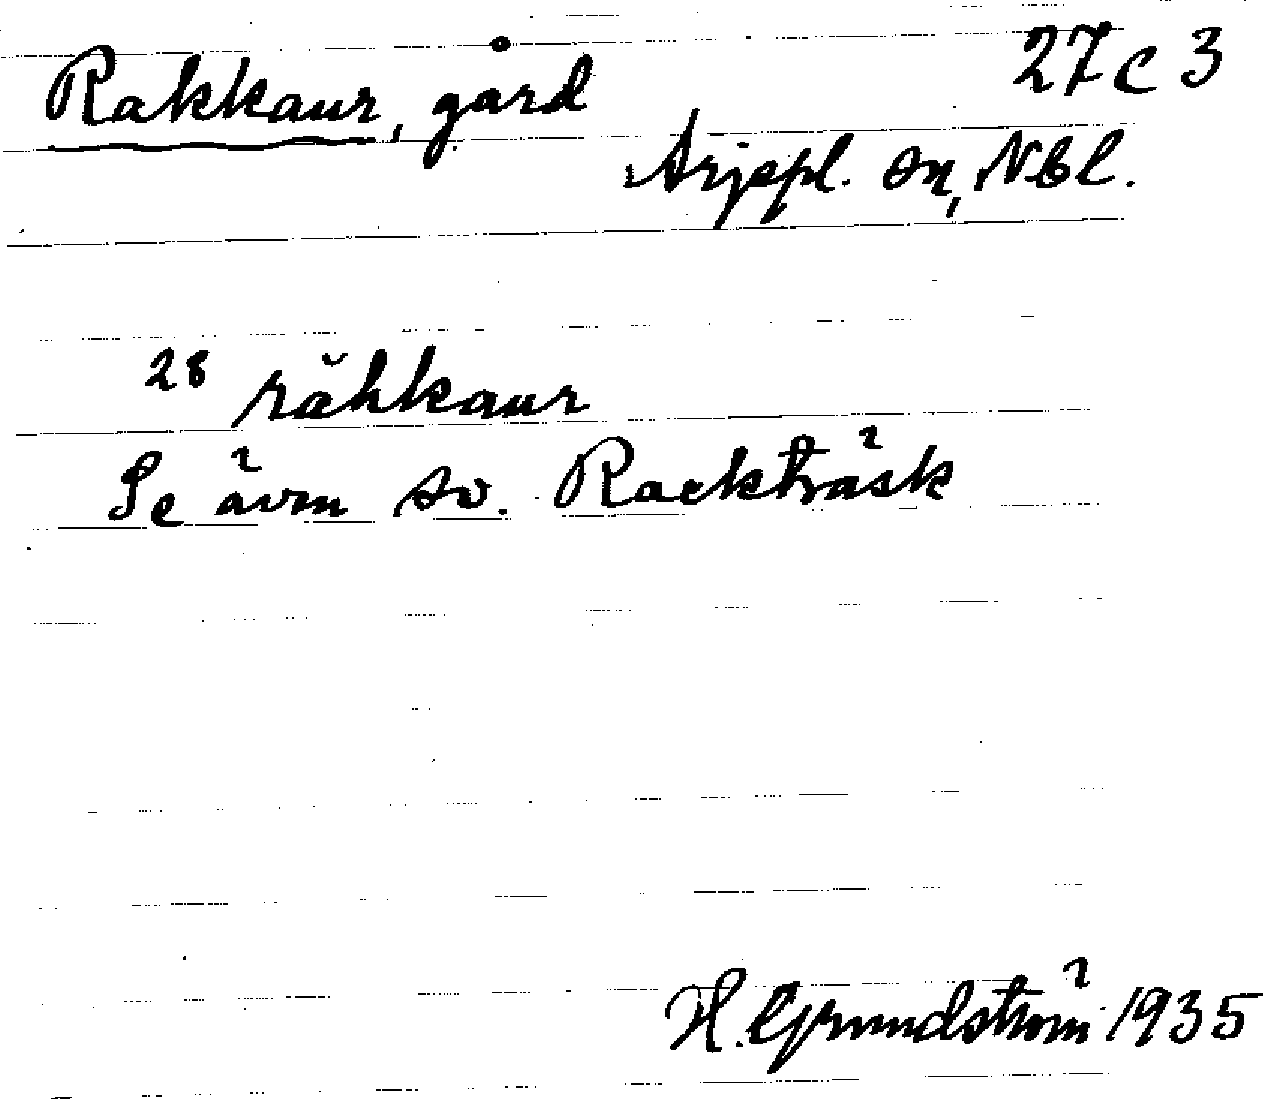 Rakkaur, gård 27 C 3
Arjepl. sn, Nbl.
28 răhkaur
Se även sv. Rackträsk
H. Grundström 1935